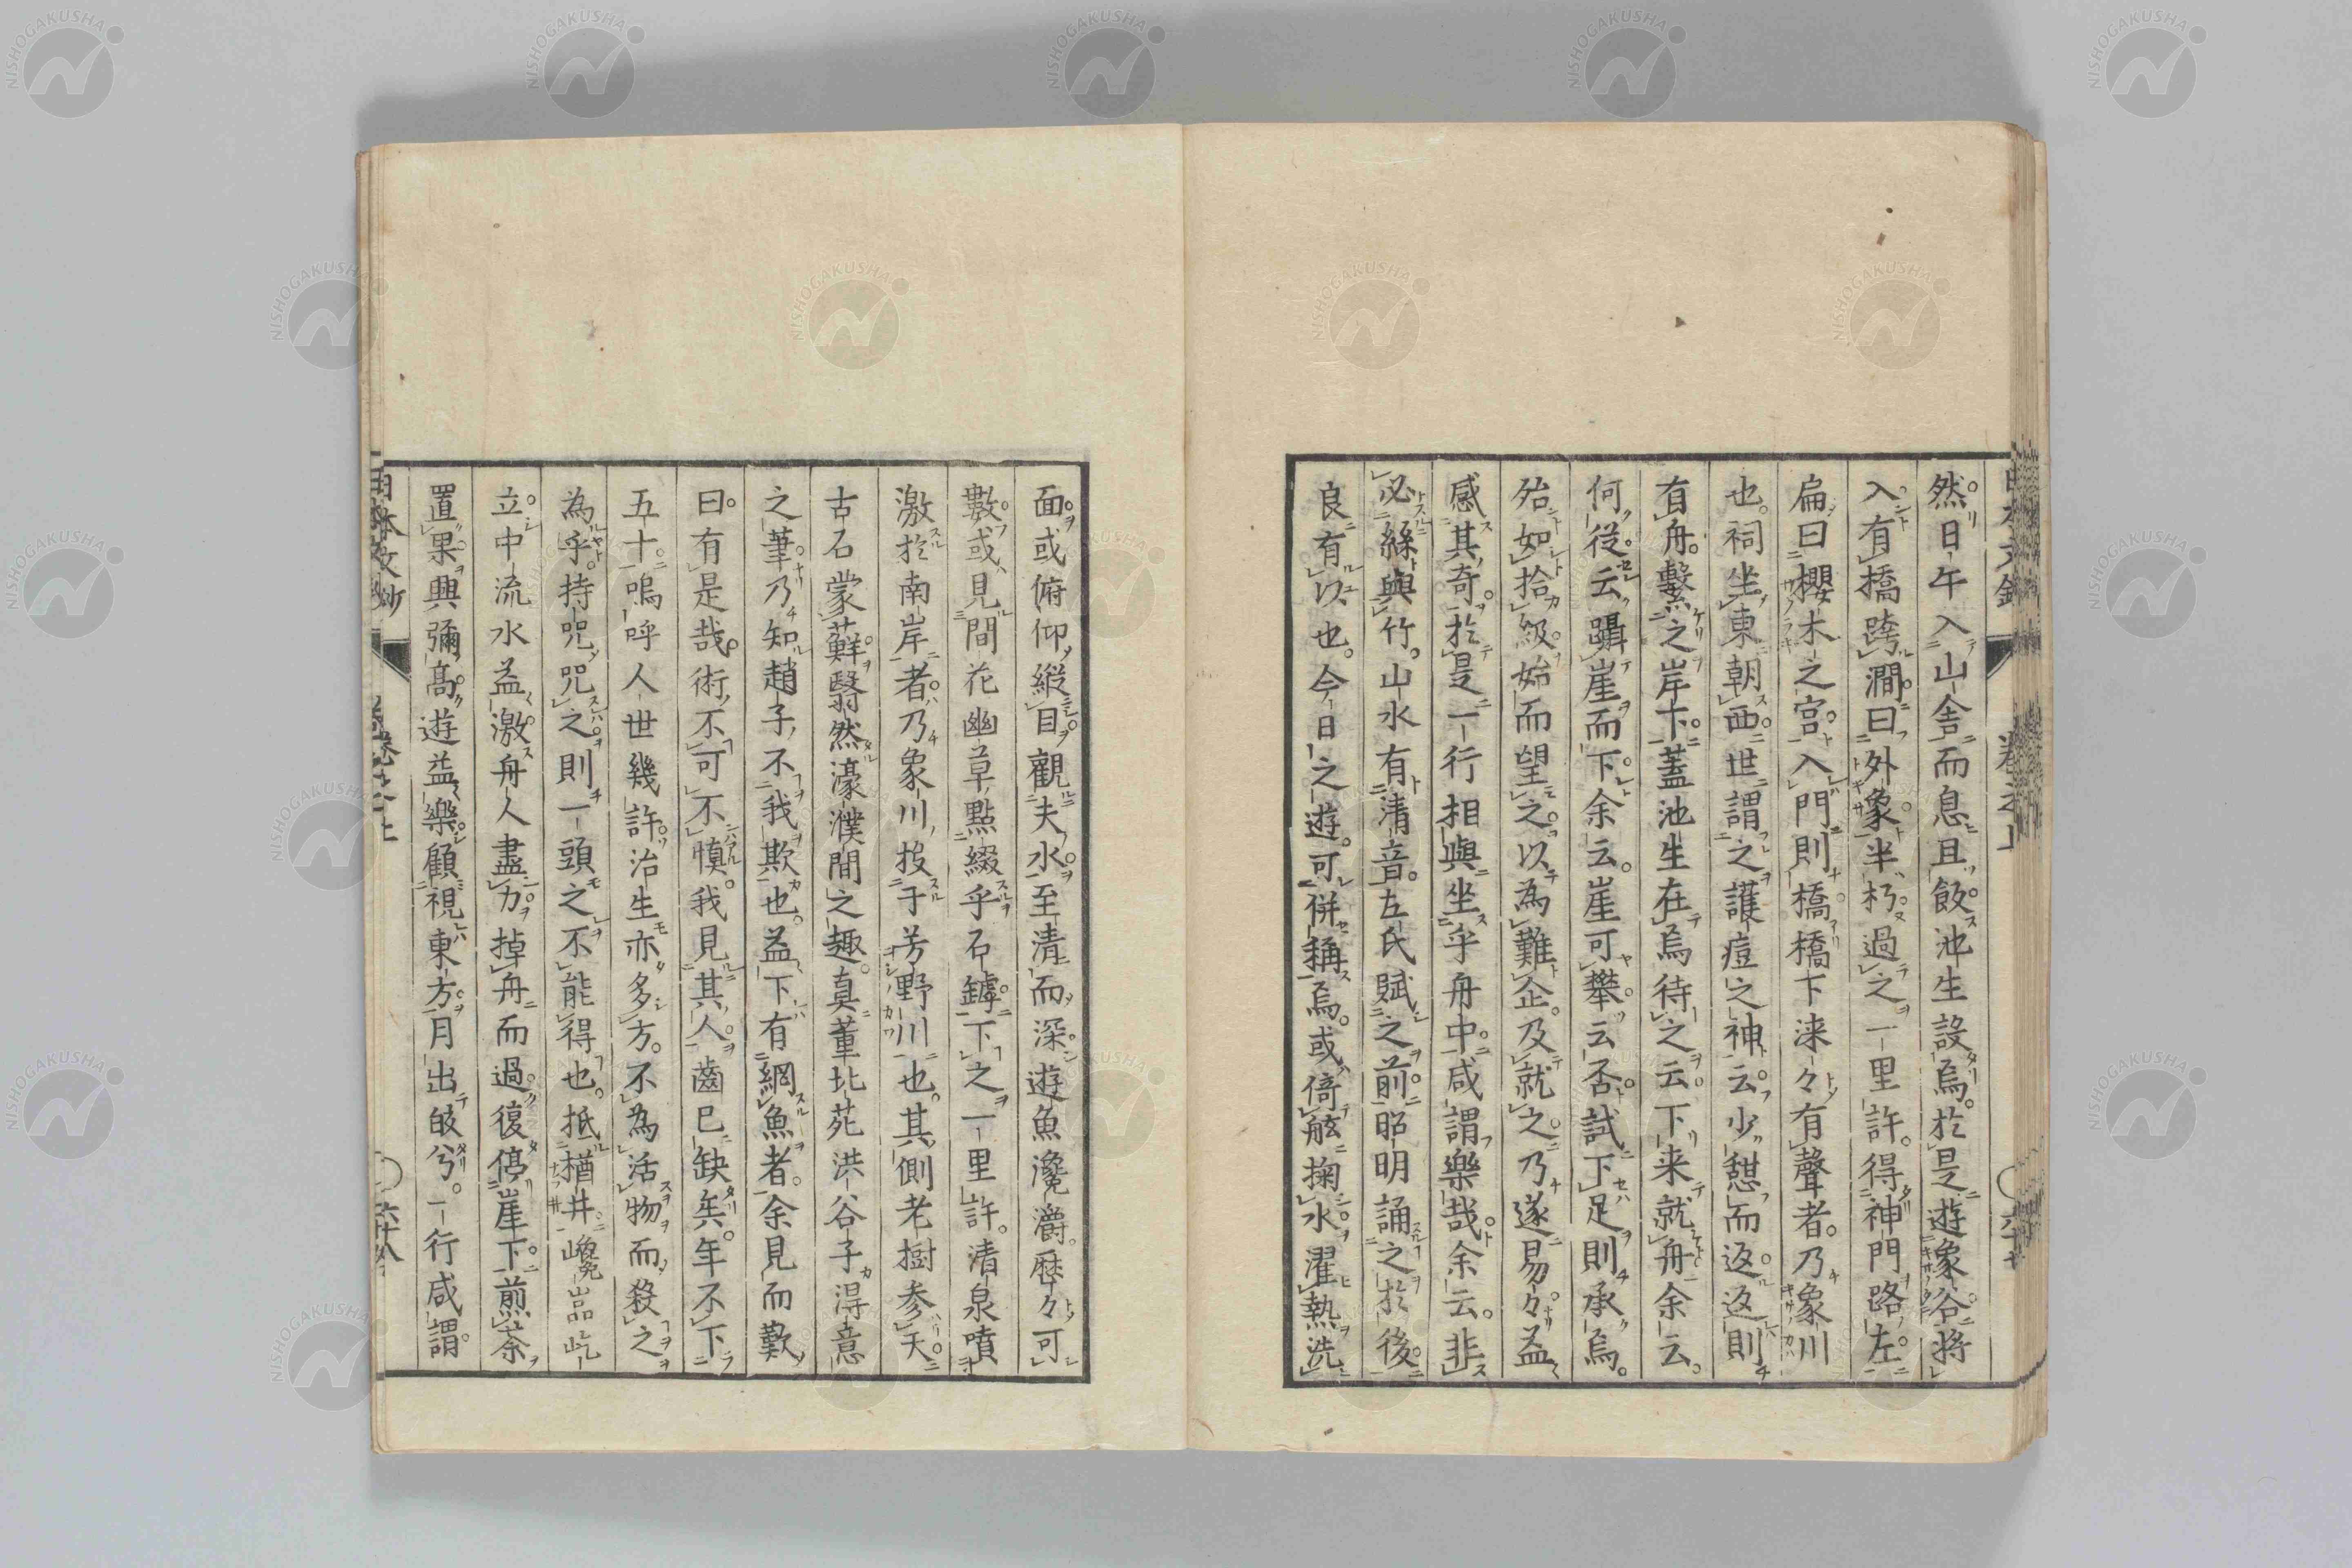 然日午入山舎而息且飯池生設焉於是遊象谷將
入有橋跨澗曰外象半朽過之一里許得神門路左
扁曰櫻木之宮入門則橋橋下淶々有聲者乃象川
也祠坐東朝西世謂之護痘之神云少憩而返返則
有舟繫之岸下蓋池生在焉待之云下来就舟余云
何從云躡崖而下余云崖可攀云否試下足則承焉
殆如拾級始而望之以為難企及就之乃遂易々益
感其奇於是一行相與坐乎舟中咸謂樂哉余云非
必絲與竹山水有清音左氏賦之前昭明誦之於後
良有以也今日之遊可併稱焉或倚舷掬水濯熱洗
面或俯仰縱目觀夫水至清而深遊魚瀺灂歷々可
數或見間花幽草點綴乎石罅下之一里許清泉噴
激於南岸者乃象川投于芳野川也其側老樹參天
古石蒙蘚翳然濠濮間之趣真董北苑洪谷子得意
之筆乃知趙子不我欺也益下有網魚者余見而歎
曰有是哉術不可不慎我見其人齒已缺矣年不下
五十嗚呼人世幾許治生亦多方不為活物而殺之
為乎持咒咒之則一頭之不能得也抵楢井巉嵓屹
立中流水益激舟人盡力掉舟而過復停崖下煎茶
置果興彌高遊益樂顧視東方月出皎兮一行咸謂
日本文鈔
卷之上